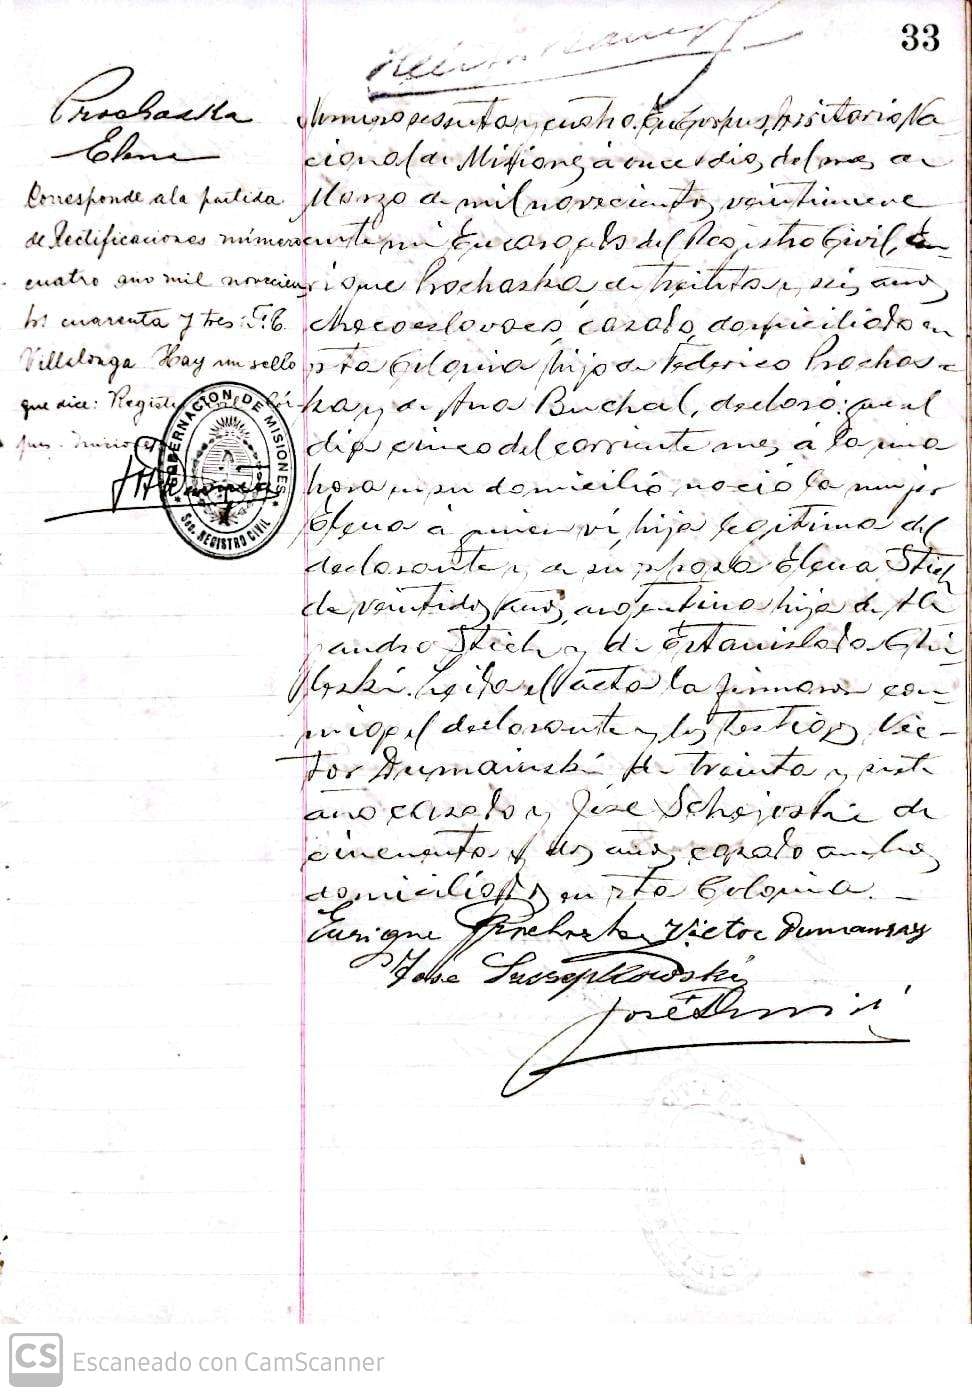 33
Prochaska
Elena
Corresponde a la partida
de Rectificaciones número
cuatro año mil novecien
tos cuarenta y tres: F. E.
Villalonga Hay un sello
que dice: Registro
GOBERNACION DE MISIONES
Sec. REGISTRO CIVIL
Número sesenta y cuatro. En Corpus, Territorio Na-
cional de Misiones, á once dias del mes de
Marzo de mil novecientos veintinueve
ante mi Encargado del Registro Civil, En-
rique Prochaska, de treinta y seis años
checoeslovaco, casado, domiciliado en
esta Colonia, hijo de Federico Prochas-
ka y de Ana Buchal, declaró: que el
dia cinco del corriente mes, á la una
hora en su domicilio nació la mujer
Elena á quien vi, hija legitima del
declarante y de su esposa Elena Stich
de veintidos años, argentina hija de
Stich y de Estanislada
Leida el acta la firmaron con-
migo el declarante y los testigos Vic-
tor Dumainski de treinta y siete
años casado y José de
cincuenta y dos años, casado ambos
domiciliados en esta Colonia.
Enrique Prochaska Victor Dumansky
José
José
CS Escaneado con CamScanner